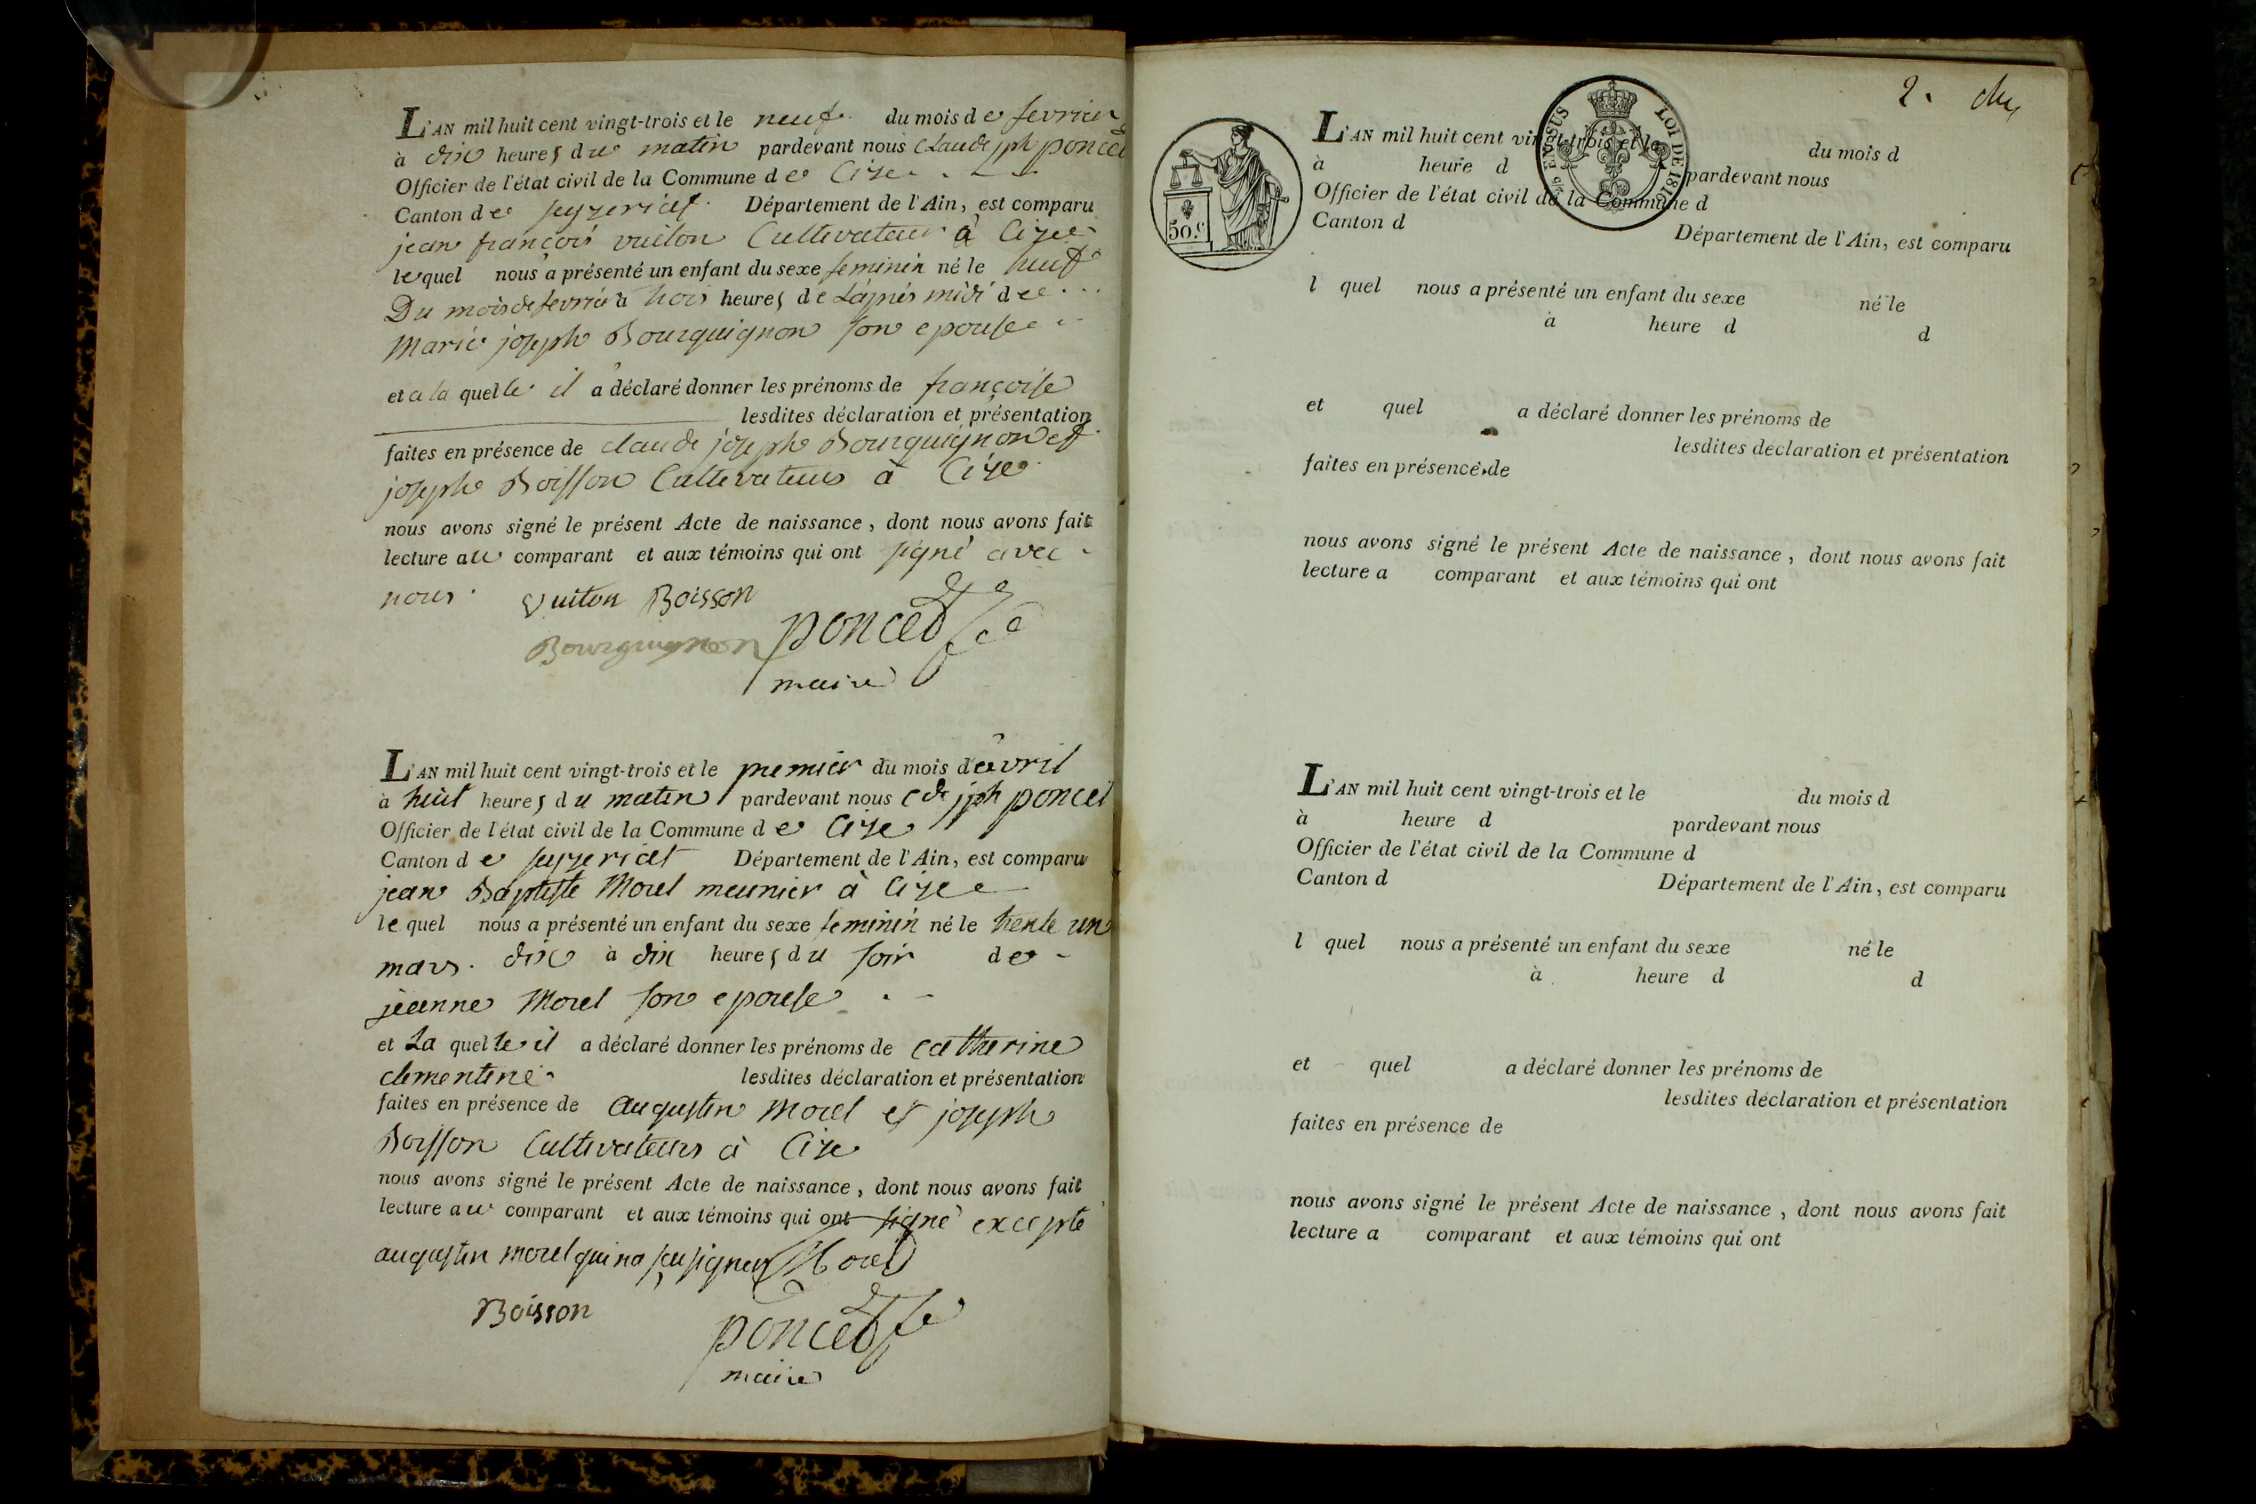 L'AN mil huit cent vingt-trois et le neuf du mois de fevrier
à dix heures du matin pardevant nous Claude jph poncet
Officier de l'état civil de la Commune de Cize
Canton de seyzeriat Département de l'Ain, est comparu
jean françois vuiton Cultivateur à Cize
lequel nous a présenté un enfant du sexe feminin né le huit
Du mois de fevrier à trois heures de l'après midi de
Marie joseph Bourguignon son epouse
et a la quelle il a déclaré donner les prénoms de françoise
lesdites déclaration et présentation
faites en présence de claude joseph Bourguignon et
joseph Boisson Cultivateurs à Cize
nous avons signé le présent Acte de naissance, dont nous avons fait
lecture au comparant et aux témoins qui ont signé avec
nous. Vuiton Boisson
Bourguignon poncet
maire
L'AN mil huit cent vingt-trois et le premier du mois d'avril
à huit heures du matin pardevant nous Cde jph poncet
Officier de l'état civil de la Commune de Cize
Canton de seyzeriat Département de l'Ain, est comparu
jean Baptiste Morel meunier à Cize
le quel nous a présenté un enfant du sexe feminin né le trente un
mars. dix à dix heures du soir de
jeanne Morel son epouse
et La quelle il a déclaré donner les prénoms de Catherine
clementine. lesdites déclaration et présentation
faites en présence de augustin Morel et joseph
Boisson Cultivateurs à Cize
nous avons signé le présent Acte de naissance, dont nous avons fait
lecture au comparant et aux témoins qui ont signé excepté
augustin morel qui na sçu signer Morel
Boisson poncet
maire
2.
EN SUS LOI DE 1816
50.c
L'AN mil huit cent vingt-trois et le du mois d
à heure d pardevant nous
Officier de l'état civil de la Commune d
Canton d Département de l'Ain, est comparu
l quel nous a présenté un enfant du sexe né le
à heure d d
et quel a déclaré donner les prénoms de
lesdites déclaration et présentation
faites en présence de
nous avons signé le présent Acte de naissance, dont nous avons fait
lecture a comparant et aux témoins qui ont
L'AN mil huit cent vingt-trois et le du mois d
à heure d pardevant nous
Officier de l'état civil de la Commune d
Canton d Département de l'Ain, est comparu
l quel nous a présenté un enfant du sexe né le
à heure d d
et quel a déclaré donner les prénoms de
lesdites déclaration et présentation
faites en présence de
nous avons signé le présent Acte de naissance, dont nous avons fait
lecture a comparant et aux témoins qui ont